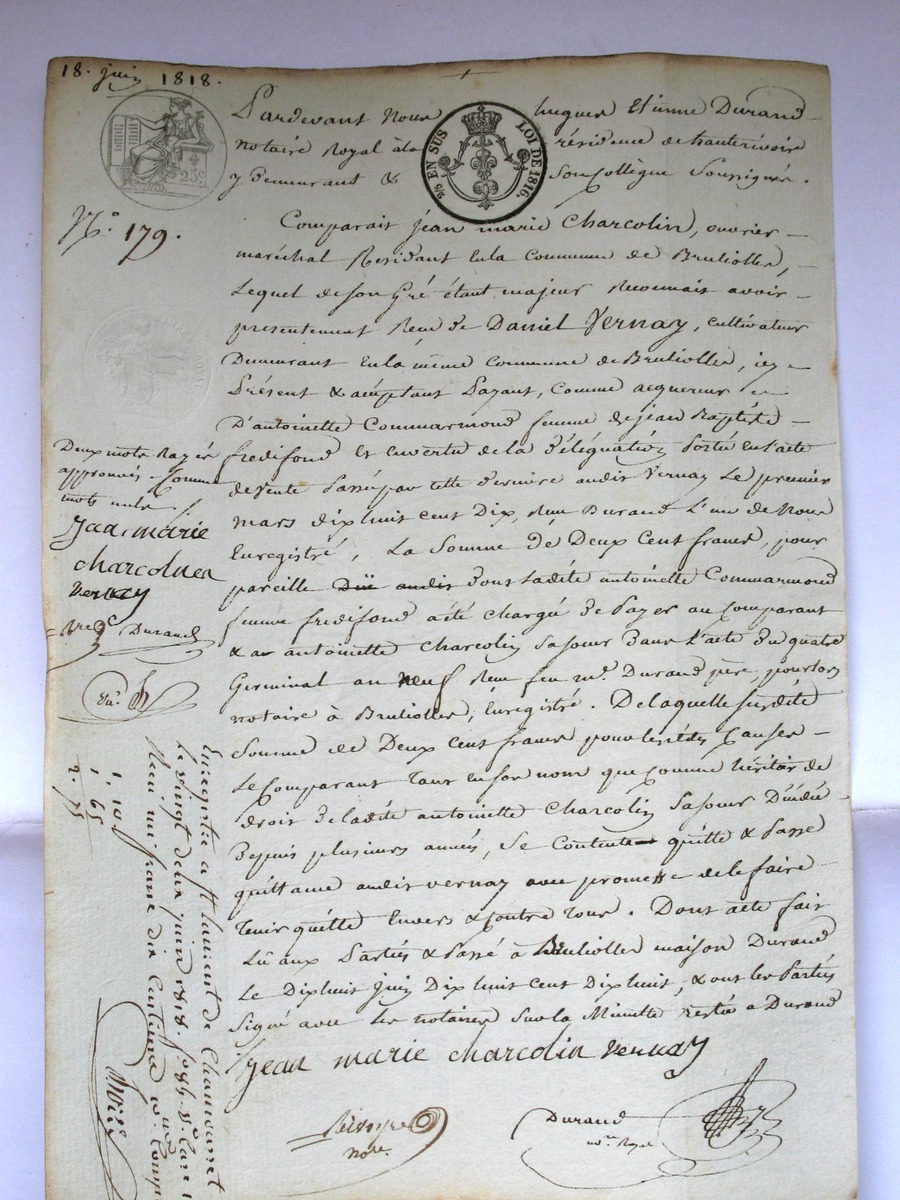 18. juin 1818.
Pardevant Nous hugues Etienne Durand
notaire Royal à la résidence de hauterivoire
y demeurant & Son Collègue Soussignés.
2/5 EN SUS
LOI DE 1816.
25c
N.o 179.
Comparait jean marie Charcolin, ouvrier
maréchal Residant En la Commune de Brullioller,
Lequel de Son Gré étant majeur Reconnait avoir
presentement Recu de Daniel Vernay, cultivateur
Demeurant En la même Commune de Brullioller, icy
Présent & acceptant Payant, Comme acquereur
D'antoinette Commarmond femme de jean Baptiste
fredifond Et en vertu de la délégation Porté En l'acte
de vente Passé par cette derniere audit Vernay Le premier
mars dix huit cent Dix, Recu Durand L'un de Nous
Enregistré, La Somme de Deux Cent francs, pour
pareille Dûe audit dont Ladite antoinette Commarmond
femme fredifond a été chargé de Payer au Comparant
& a antoinette Charcolin Sa Soeur Dans L'acte du quatre
Germinal an Neuf Recu feu m.e Durand père, pour lors
notaire à Brullioller, Enregistré. De laquelle Susdite
Somme de Deux Cent francs pour les
Causes
Le Comparant Tant en son nom que Comme héritier de
droit de ladite antoinette Charcolin Sa Soeur Décédée
Depuis plusieurs années, Se Contente quitte & Passe
quittance audit vernay avec promesse de le faire
Tenir quitte Envers & Contre Tous. Dont acte fait
Lû aux Parties & Passé à Brullioller maison Durand
Le Dix huit juin Dix huit Cent Dix huit, & ont les Parties
Signé avec les notaires Sur la Minutte restée a Durand
jean marie charcolin vernay
Durand
n.re Royal
not.re
Deux mots Rayés
approuvés Comme
mots nuls.
jean marie
charcolin
vernay
Durand
Enregistré a St laurent de Chamousset
Le vingt deux juin 1818.
Recu un franc dix Centimes
1, 10
1, 65
2, 75